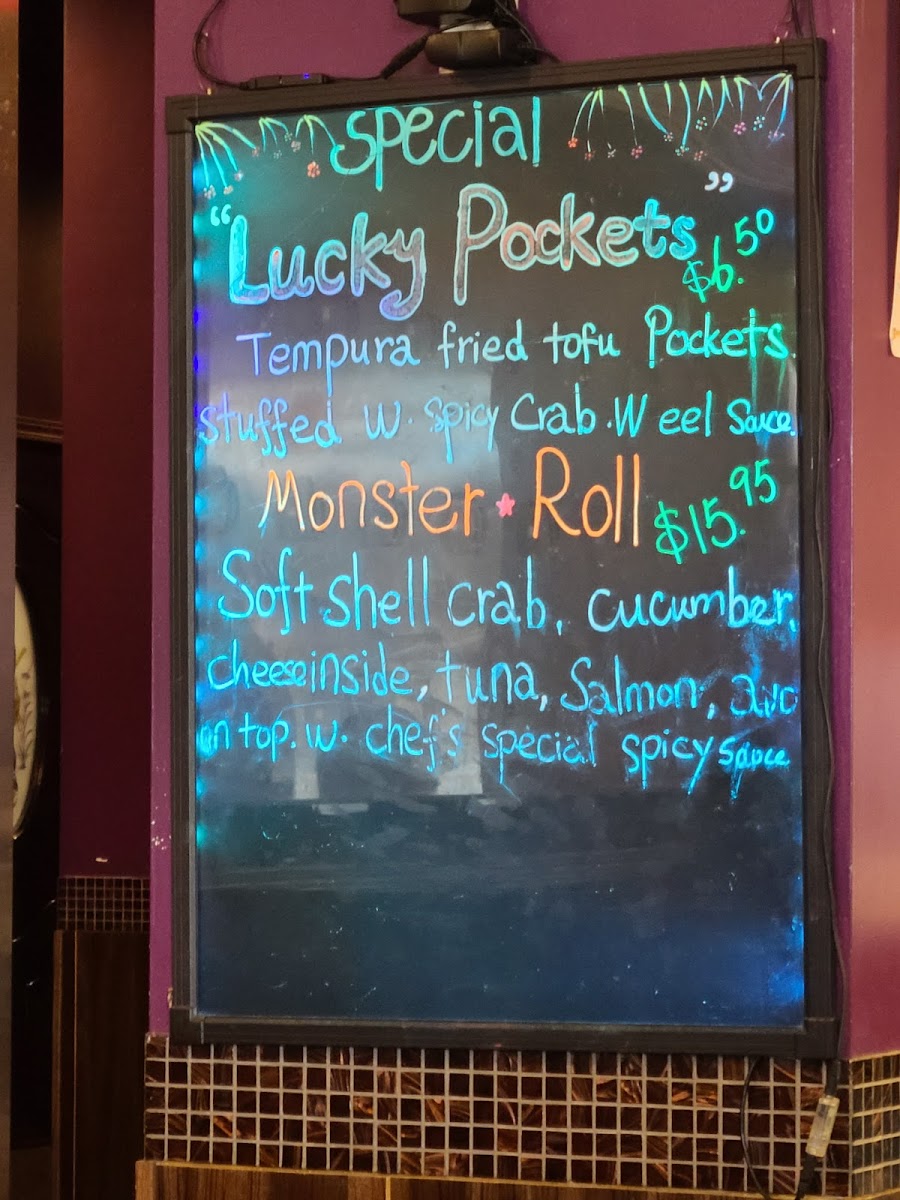 Special
"Lucky Pockets" $6.50
Tempura fried tofu Pockets
stuffed w. spicy Crab .W eel Sauce.
Monster Roll $15.95
Soft shell crab, cucumber,
cheese inside, tuna, Salmon, avo
on top. w. chef's special spicy sauce